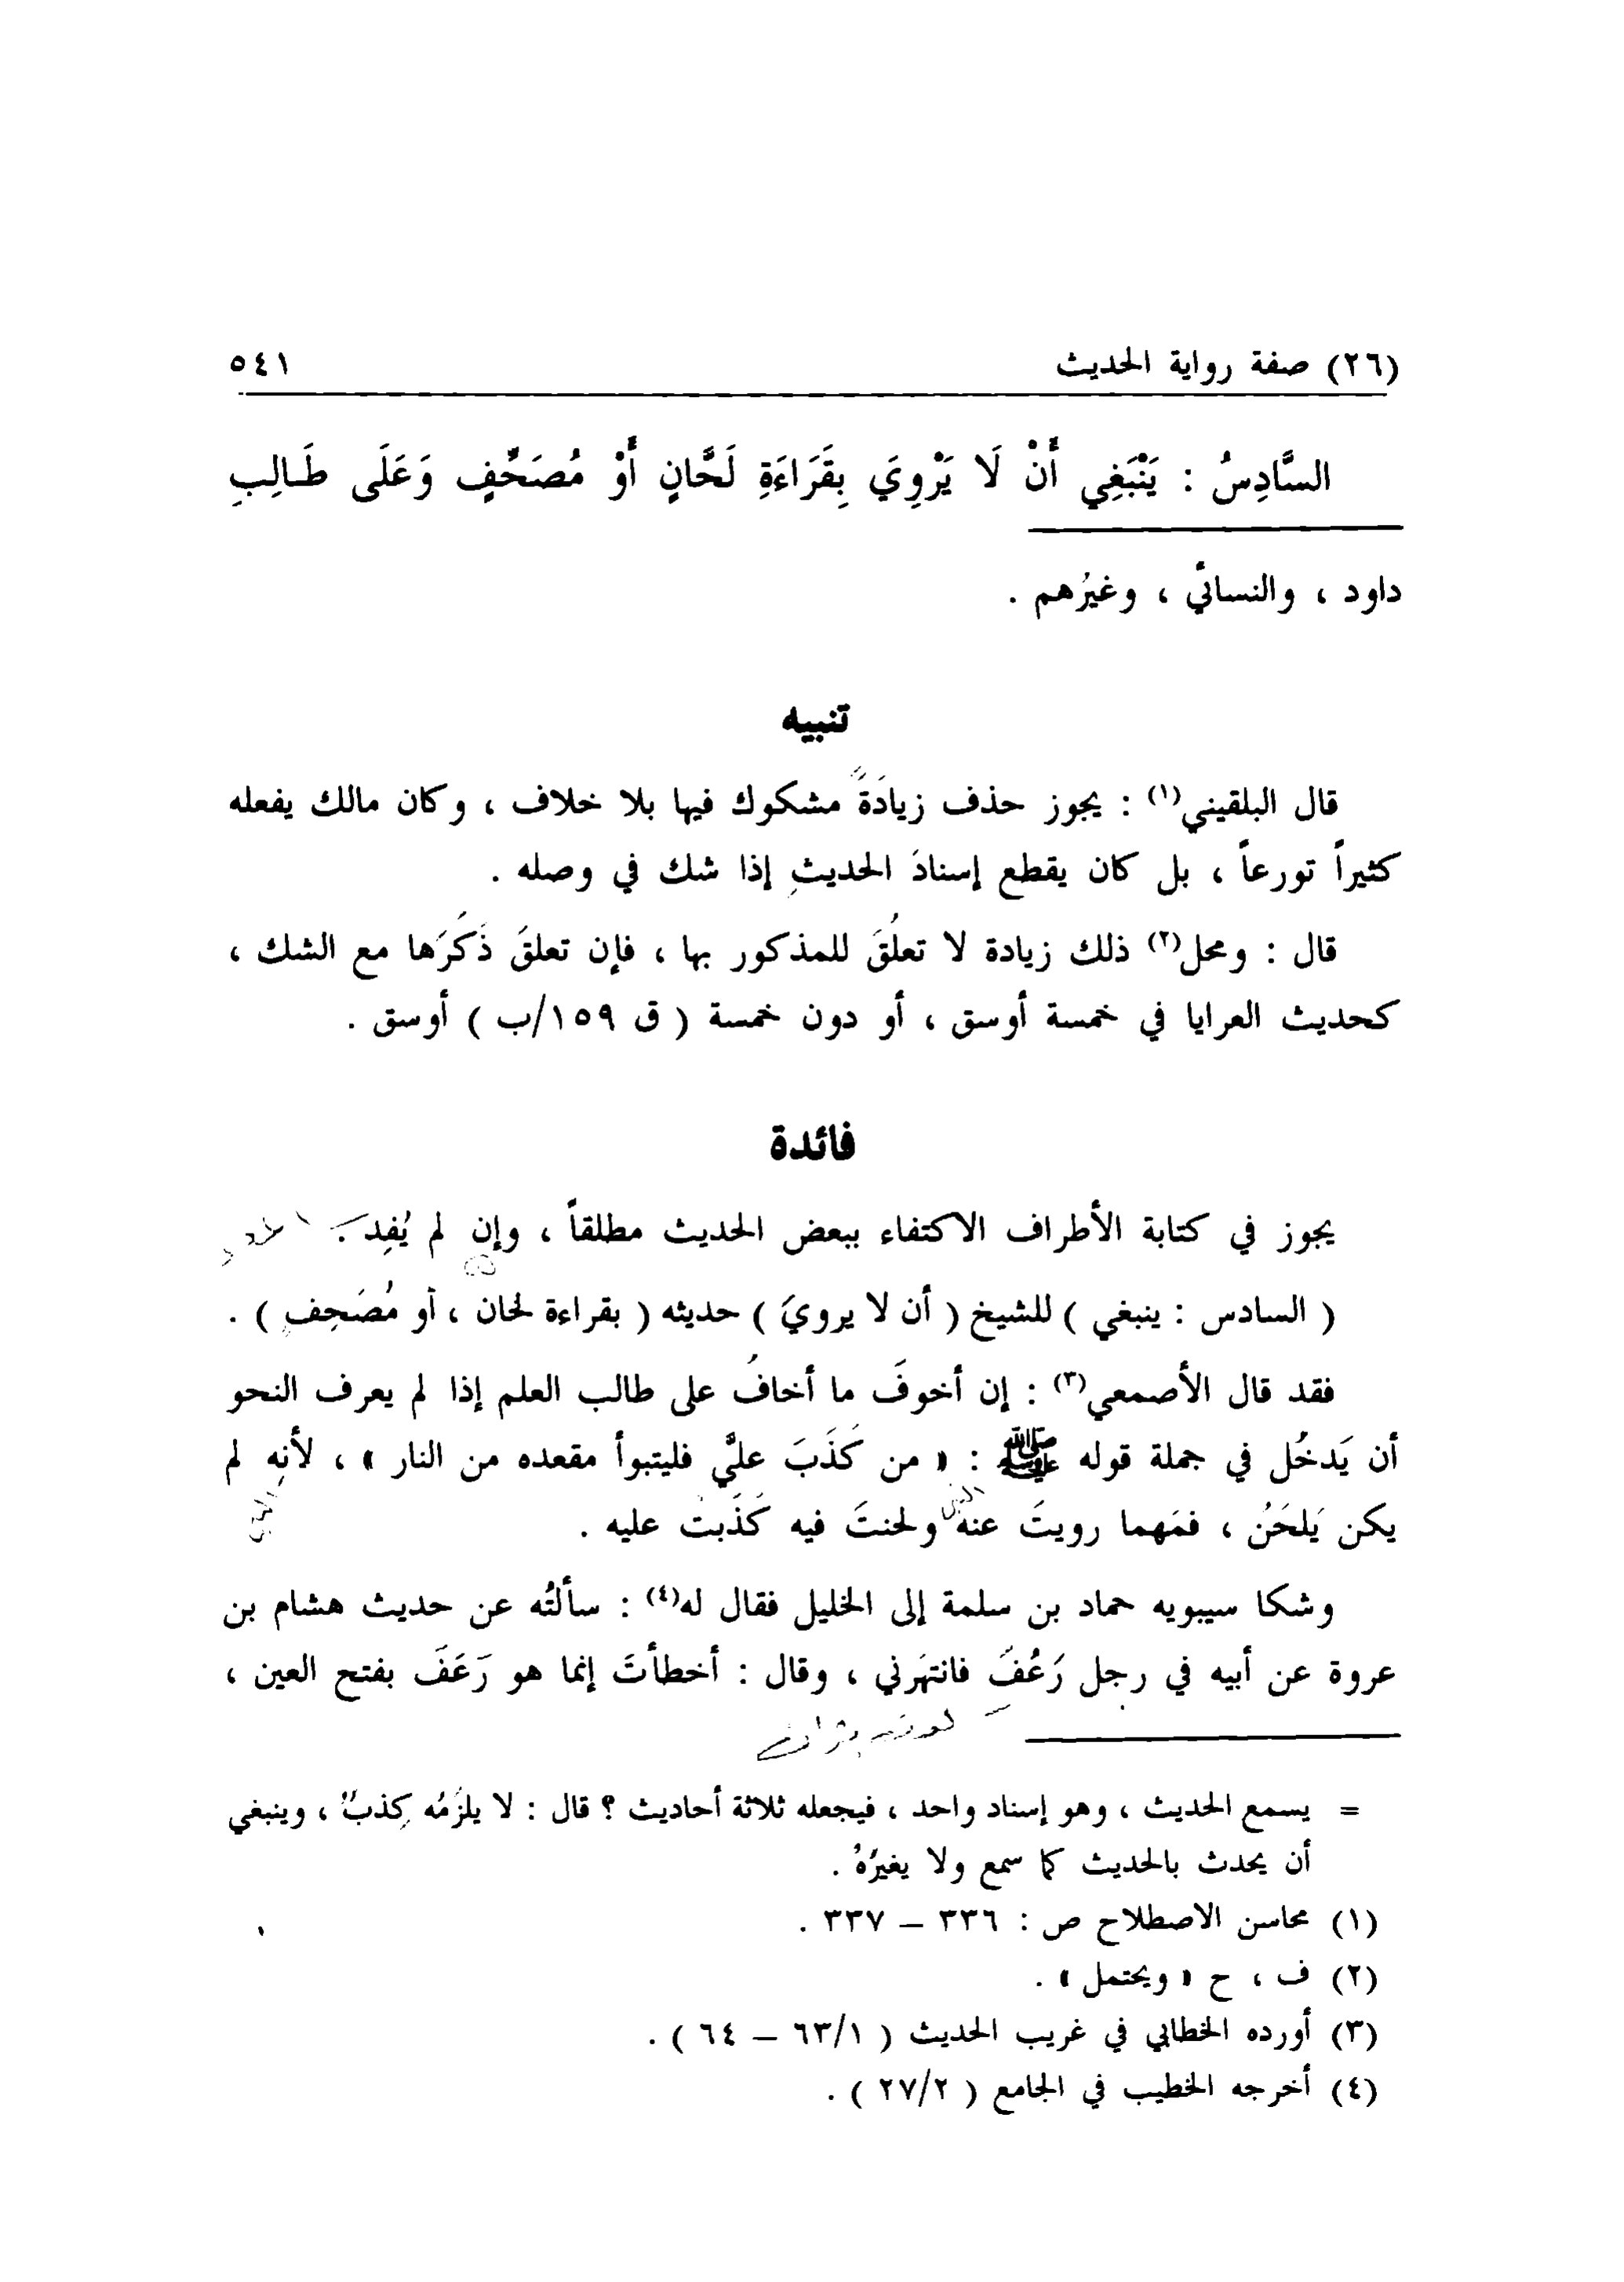 (٢٦) صفة رواية الحديث ٥٤١
السَّادِسُ : يَنْبَغِي أَنْ لَا يَرْوِيَ بِقَرَاءَةِ لَحَّانٍ أَوْ مُصَحِّفٍ وَعَلَى طَالِبِ
داود ، والنسائي ، وغيرُهم .
تنبيه
قال البلقيني(١) : يجوز حذف زيادَةً مشكوك فيها بلا خلاف ، وكان مالك يفعله
كثيراً تورعاً ، بل كان يقطع إسنادَ الحديثِ إذا شك في وصله .
قال : ومحل(٢) ذلك زيادة لا تعلُقَ للمذكور بها ، فإن تعلقَ ذَكَرَها مع الشك ،
كحديث العرايا في خمسة أوسق ، أو دون خمسة ( ق ١٥٩/ب ) أوسق .
فائدة
يجوز في كتابة الأطراف الاكتفاء ببعض الحديث مطلقاً ، وإن لم يُفِد .
( السادس : ينبغي ) للشيخ ( أن لا يرويَ ) حديثه ( بقراءة لحان ، أو مُصَحِفٍ ) .
فقد قال الأصمعي(٣) : إن أخوفَ ما أخافُ على طالب العلم إذا لم يعرف النحو
أن يَدخُل في جملة قوله ﷺ : « من كَذَبَ عليَّ فليتبوأ مقعده من النار » ، لأنه لم
يكن يَلحَنُ ، فمَهما رويتَ عنه ولحنتَ فيه كَذَبتَ عليه .
وشكا سيبويه حماد بن سلمة إلى الخليل فقال له(٤) : سألتُه عن حديث هشام بن
عروة عن أبيه في رجل رَعُفَ فانتهَرني ، وقال : أخطأتَ إنما هو رَعَفَ بفتح العين ،
= يسمع الحديث ، وهو إسناد واحد ، فيجعله ثلاثة أحاديث ؟ قال : لا يلزَمُه كِذبٌ ، وينبغي
أن يحدث بالحديث كما سمع ولا يغيرُهُ .
(١) محاسن الاصطلاح ص : ٣٣٦ – ٣٣٧ .
(٢) ف ، ح « ويحتمل » .
(٣) أورده الخطابي في غريب الحديث ( ٦٣/١ – ٦٤ ) .
(٤) أخرجه الخطيب في الجامع ( ٢٧/٢ ) .